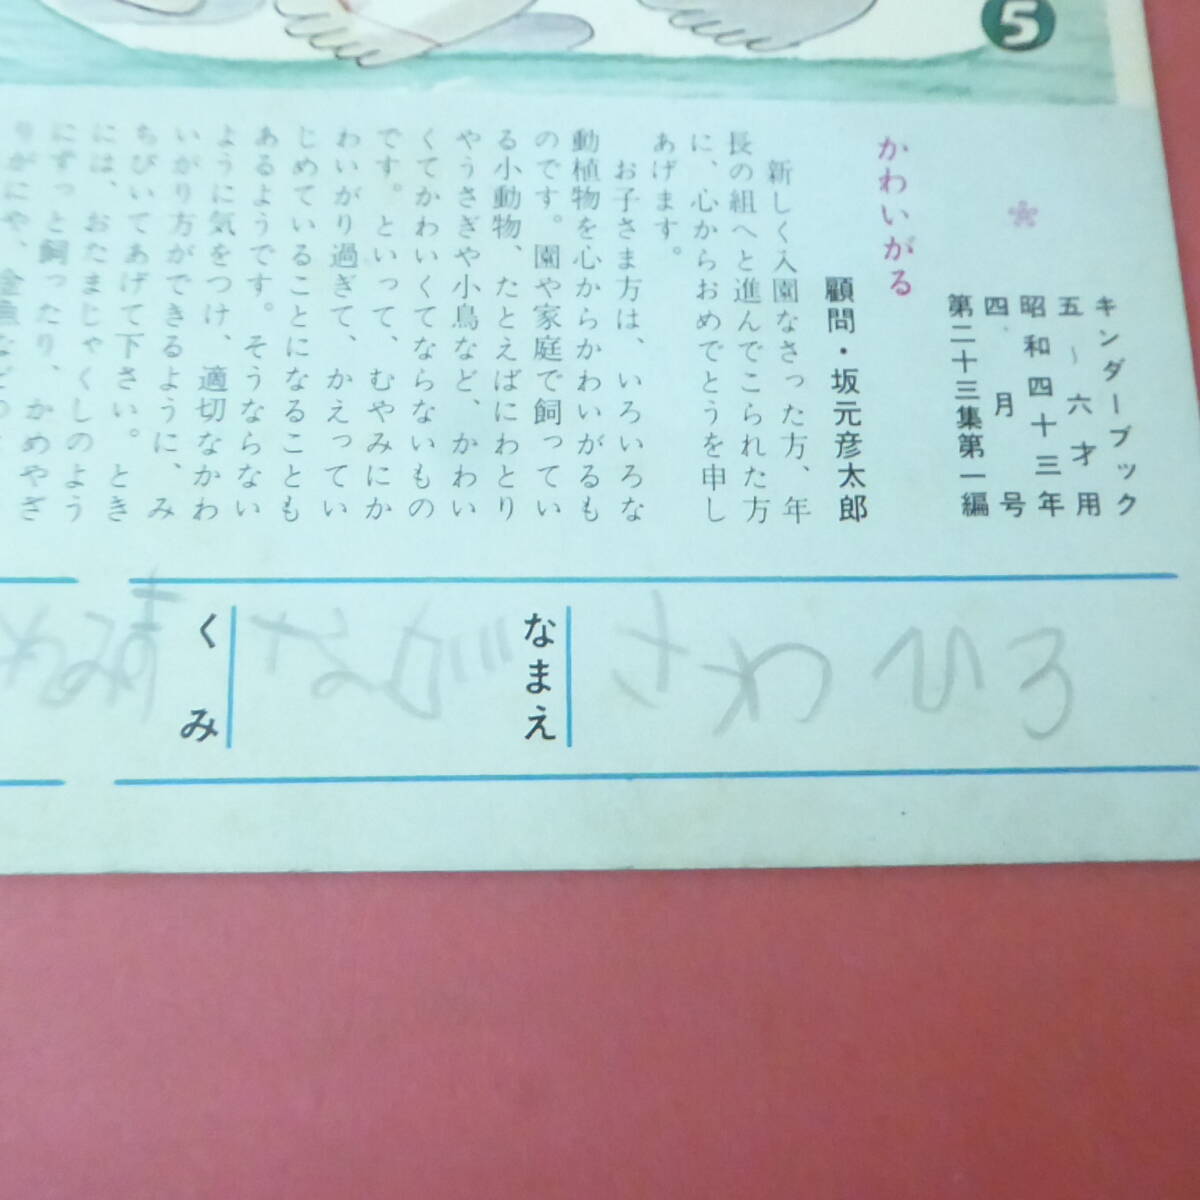 5
キンダーブック
五~六才用
昭和四十三年
四月号
第二十三集第一編
かわいがる
顧問・坂元彦太郎
新しく入園なさった方、年
長の組へと進んでこられた方
に、心からおめでとうを申し
あげます。
お子さま方は、いろいろな
動植物を心からかわいがるも
のです。園や家庭で飼ってい
る小動物、たとえばにわとり
やうさぎや小鳥など、かわい
くてかわいくてならないもの
です。といって、むやみにか
わいがり過ぎて、かえってい
じめていることになることも
あるようです。そうならない
ように気をつけ、適切なかわ
いがり方ができるように、み
ちびいてあげて下さい。とき
には、おたまじゃくしのよう
にずっと飼ったり、かめやざ
りがにや、金魚などの
なまえ
さわひろ
くみ